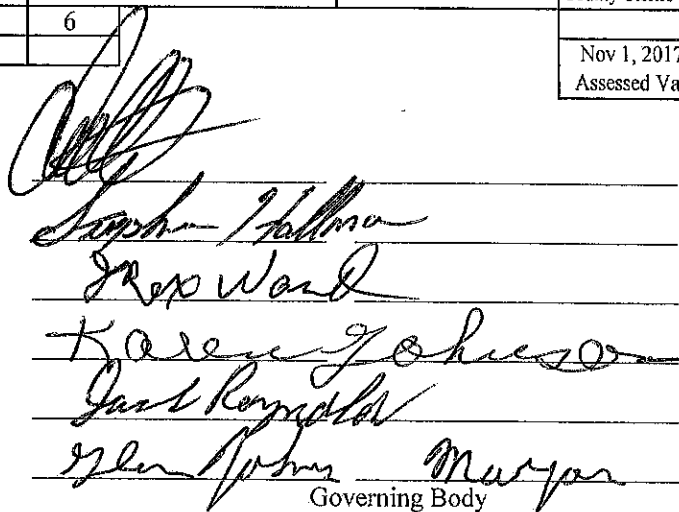 6
Nov 1, 2017
Assessed Va
Stephen Hallman
J Rex Ward
Karen Johnson
Jack Reynolds
Glen Johns Mayor
Governing Body